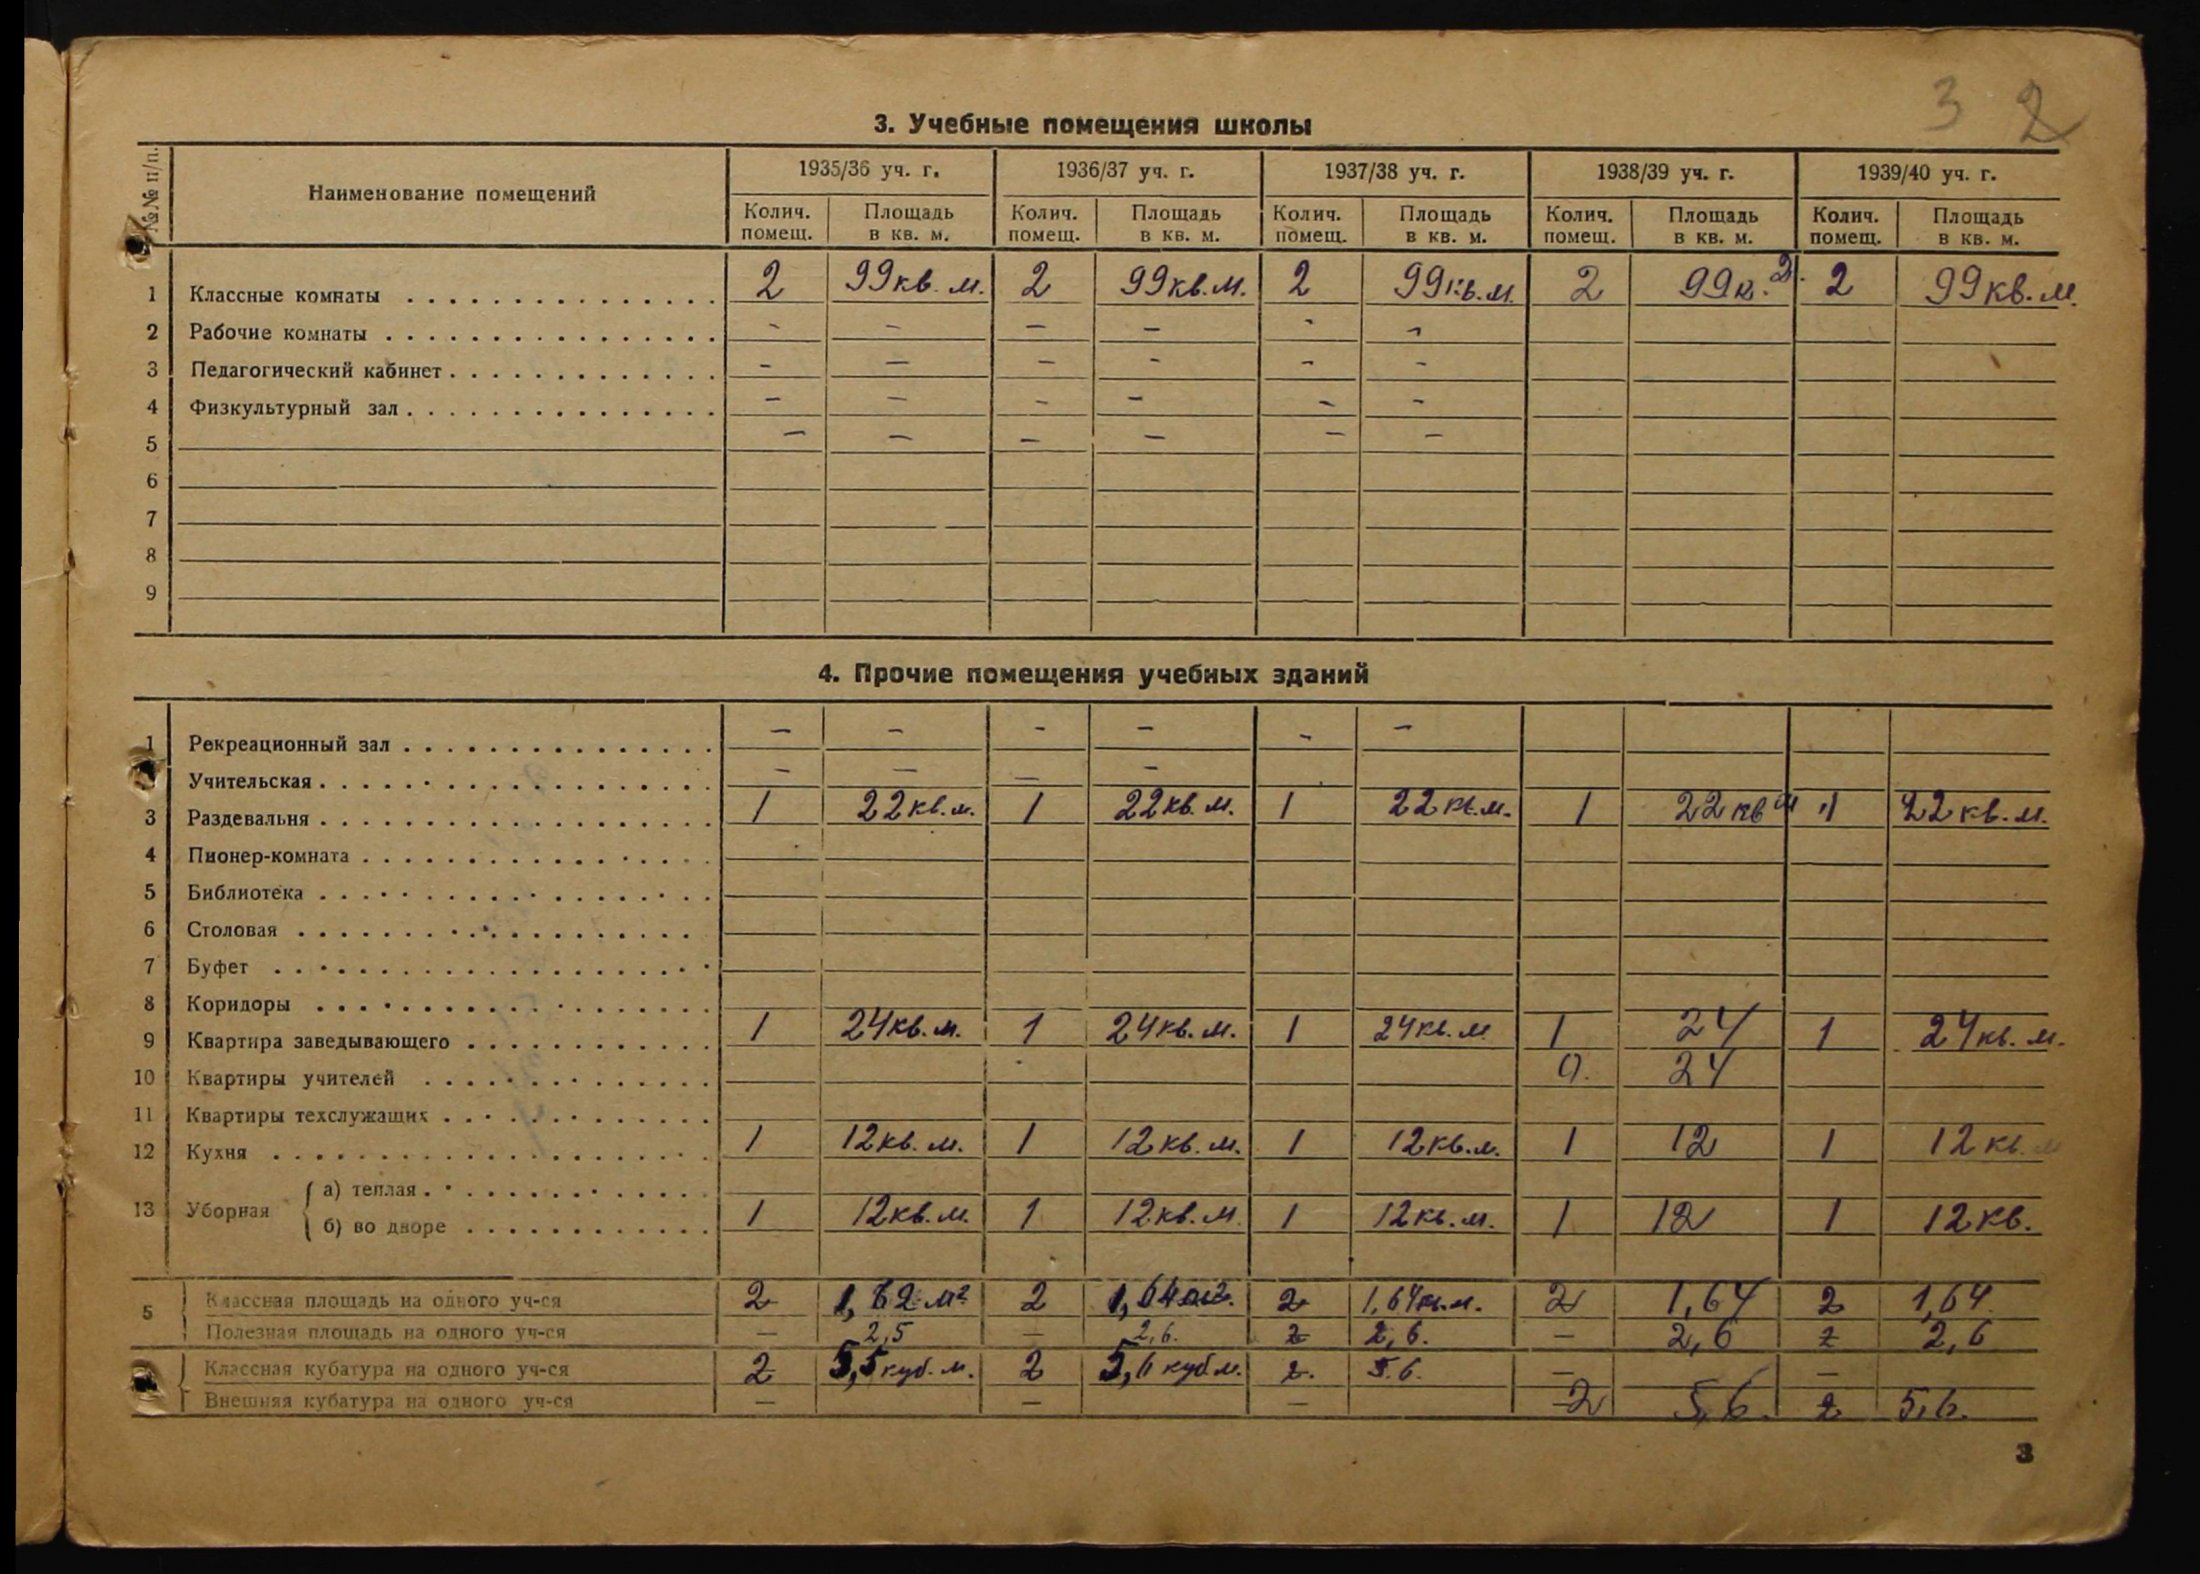 3 2
3. Учебные помещения школы
№№ п/п. Наименование помещений 1935/36 уч. г. 1936/37 уч. г. 1937/38 уч. г. 1938/39 уч. г. 1939/40 уч. г.
Колич. помещ. Площадь в кв. м. Колич. помещ. Площадь в кв. м. Колич. помещ. Площадь в кв. м. Колич. помещ. Площадь в кв. м. Колич. помещ. Площадь в кв. м.
1 Классные комнаты 2 99кв. м. 2 99кв.м. 2 99кв.м. 2 99к. 2 99кв.м.
2 Рабочие комнаты - - - - - -
3 Педагогический кабинет - - - - - -
4 Физкультурный зал - - - - - -
5 - - - - - -
6
7
8
9
4. Прочие помещения учебных зданий
1 Рекреационный зал - - - - - -
Учительская - - - -
3 Раздевальня 1 22кв.м. 1 22кв.м. 1 22кв.м. 1 22кв 1 22кв.м.
4 Пионер-комната
5 Библиотека
6 Столовая
7 Буфет
8 Коридоры
9 Квартира заведывающего 1 24кв.м. 1 24кв.м. 1 24кв.м 1 24 1 24кв.м.
10 Квартиры учителей 24
11 Квартиры техслужащих
12 Кухня 1 12кв.м. 1 12кв.м. 1 12кв.м. 1 12 1 12кв.м
13 Уборная а) теплая
б) во дворе 1 12кв.м. 1 12кв.м. 1 12кв.м. 1 12 1 12кв.
5 Классная площадь на одного уч-ся 2 1,62 м² 2 1,64 м². 2 1,64кв.м. 2 1,64 2 1,64.
Полезная площадь на одного уч-ся — 2,5 — 2,6. 2 2,6. — 2,6 2 2,6
Классная кубатура на одного уч-ся 2 5,5 куб.м. 2 5,6 куб.м. 2. 5.6. — —
Внешняя кубатура на одного уч-ся — — — 2 5,6. 2 5,6.
3